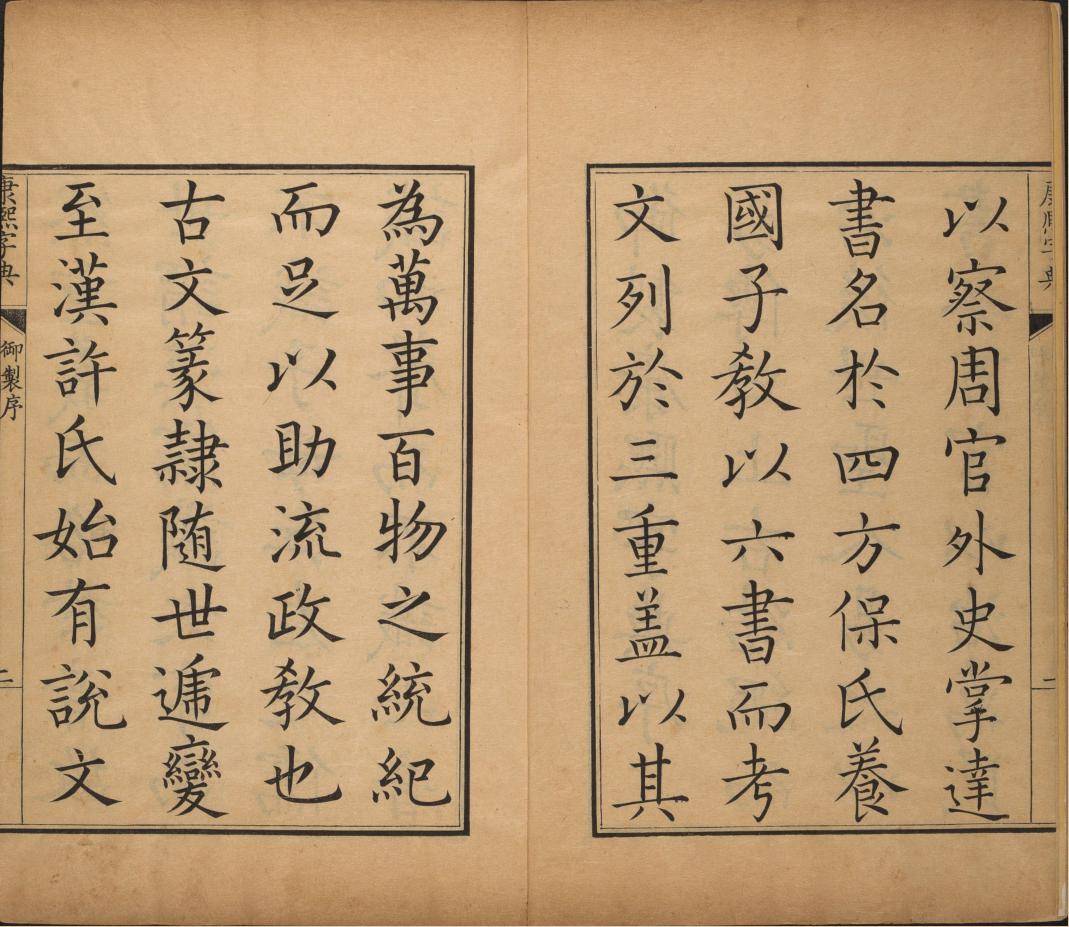 康熙字典
一
以察周官外史掌達
書名於四方保氏養
國子教以六書而考
文列於三重蓋以其
為萬事百物之統紀
而足以助流政教也
古文篆隸随世遞變
至漢許氏始有說文
康熙字典
御製序
二